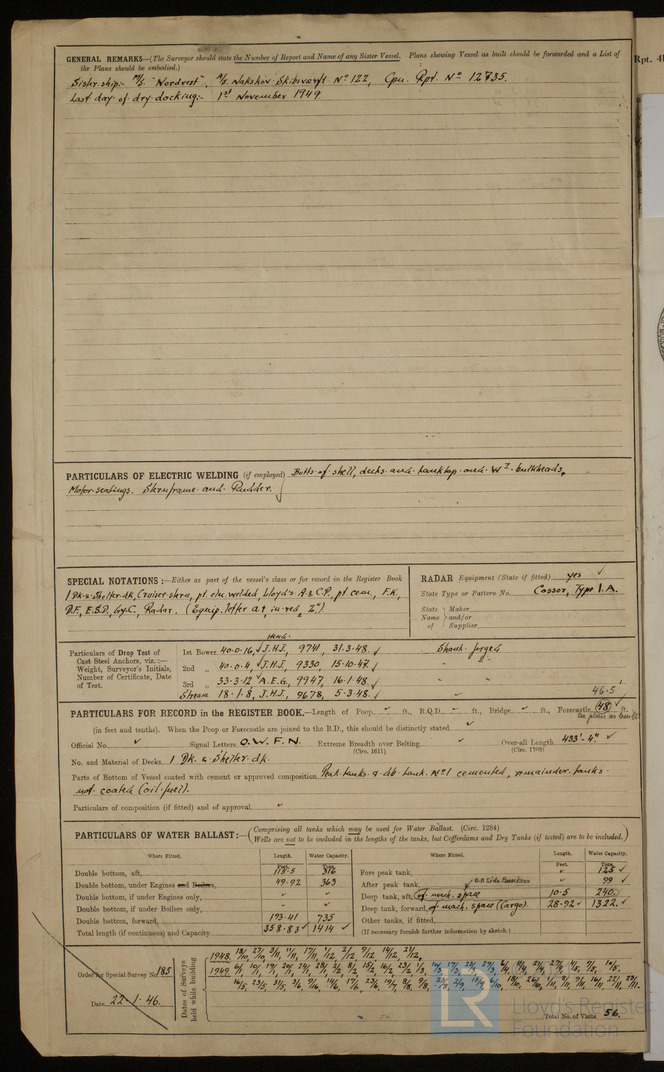 GENERAL REMARKS—(The Surveyor should state the Number of Report and Name of any Sister Vessel. Plans showing Vessel as built should be forwarded and a List of
the Plans should be embodied.)
Rpt. 4
Sister ship:- M/S. "Nordvest", A/S. Nakskov Skibsværft No 122, Cpn. Rpt. No 12735.
Last day of dry docking:- 1st November 1949
PARTICULARS OF ELECTRIC WELDING (if employed) Butts of shell, decks and tanktop and W.T. bulkheads,
Motor-seatings, Sternframe and Rudder.
SPECIAL NOTATIONS:—Either as part of the vessel's class or for record in the Register Book
1 Dk & Shelter dk, Cruiser stern, pt. elec. welded, Lloyd's A & C.P., pt cem., F.K.,
D.F., E.S.D., Gy.C., Radar. (Equip. letter a† in red, Z")
RADAR Equipment (State if fitted) yes ✓
State Type or Pattern No. Cossor, Type 1.A.
State Maker
Name and/or
of Supplier
Particulars of Drop Test of
Cast Steel Anchors, viz.:—
Weight, Surveyor's Initials,
Number of Certificate, Date
of Test.
1st Bower 40-0-16, ✓ J.H.J., 9741, 31.3.48. ✓ Shank forged
2nd „ 40-0-4, ✓ J.H.J., 9330, 15-10-47. ✓ " "
3rd „ 33-3-12 ✓ A.E.G., 9947, 16-1-48. ✓ " "
Stream 18-1-8, J.H.J., 9678, 5-3-48. ✓ "
46.5'
PARTICULARS FOR RECORD in the REGISTER BOOK.—Length of Poop ft., R.Q.D. ft., Bridge ft., Forecastle (48) ft.
(in feet and tenths). When the Poop or Forecastle are joined to the B.D., this should be distinctly stated
Official No. Signal Letters O.W.F.N. Extreme Breadth over Belting Over-all Length 433'-4" ✓
(Circ. 1611) (Circ. 1703)
No. and Material of Decks 1 Dk. & Shelter dk.
Parts of Bottom of Vessel coated with cement or approved composition Peak tanks & db. tank No 1 cemented, remainder tanks
not coated (oil fuel).
Particulars of composition (if fitted) and of approval
PARTICULARS OF WATER BALLAST:— (Comprising all tanks which may be used for Water Ballast. (Circ. 1284)
Wells are not to be included in the lengths of the tanks, but Cofferdams and Dry Tanks (if tested) are to be included.)
Where Fitted. Length. Water Capacity. Where Fitted. Length. Water Capacity.
Feet. Tons. Feet. Tons.
Double bottom, aft, 115.5 316
Double bottom, under Engines and Boilers, 49.92 363
Double bottom, if under Engines only,
Double bottom, if under Boilers only,
Double bottom, forward, 193.41 735
Total length (if continuous) and Capacity 358.83 ✓ 1414 ✓
Fore peak tank, 125 ✓
After peak tank, 99 ✓
Deep tank, aft, of mach. space 10.5 240
Deep tank, forward, of mach. space (Cargo) 28.92 ✓ 1322. ✓
Other tanks, if fitted,
(If necessary furnish further information by sketch.)
Order for Special Survey No. 185
Date 22-1-46.
Dates of Surveys
held while building
1948.
1949.
Total No. of Visits 56.
LR
Lloyd's Register
Foundation